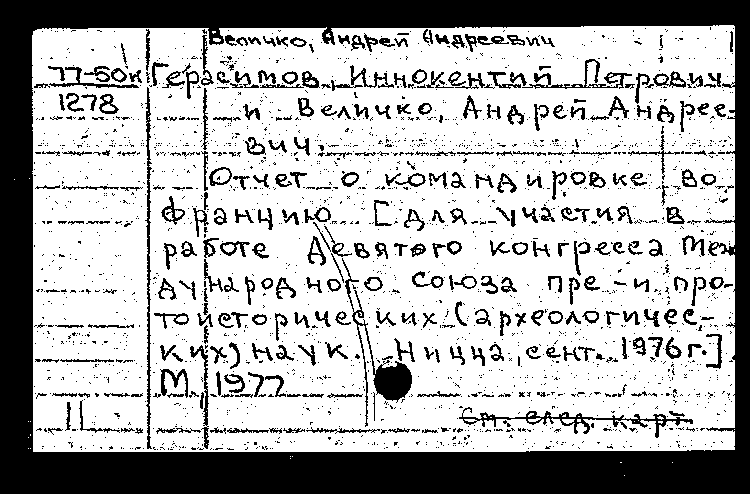 Величко, Андрей Андреевич
77-50к Герасимов, Иннокентий Петрович
1278 и Величко, Андрей Андрее-
вич.
Отчет о командировке во
Францию [для участия в
работе Девятого конгресса Меж
дународного Союза пре-и про-
тоисторических (археологичес-
ких) наук. Ницца, сент. 1976г.]
М, 1977
11 См. след. карт.